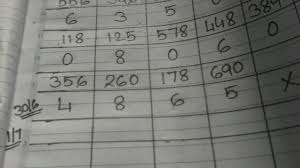 556 390
6 3 5 0 389
118 125 578 448 0
0 8 0 6
356 260 178 690 X
30/6 4 8 6 5
1/7